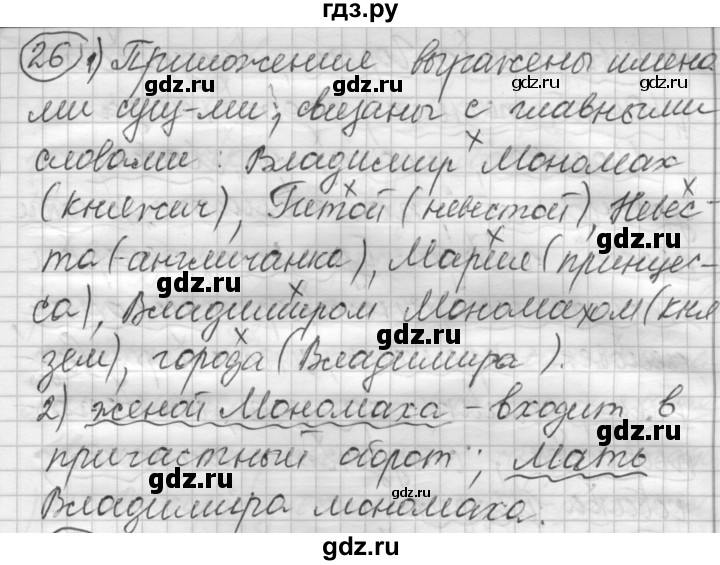 гдз.ру
26 1) Приложения выражены имена
ми сущ-ми; связаны с главными
словами: Владимир Мономах
(княжич), Гитой (невестой), Невес-
та (-англичанка), Мария (принцес-
са), Владимиром Мономахом (кня
зем), города (Владимира).
2) женой Мономаха - входит в
причастный оборот; Мать
Владимира мономаха.
gdz.ru
gdz.ru
gdz.ru
gdz.ru
gdz.ru
gdz.ru
gdz.ru
gdz.ru
gdz.ru
gdz.ru
gdz.ru
gdz.ru